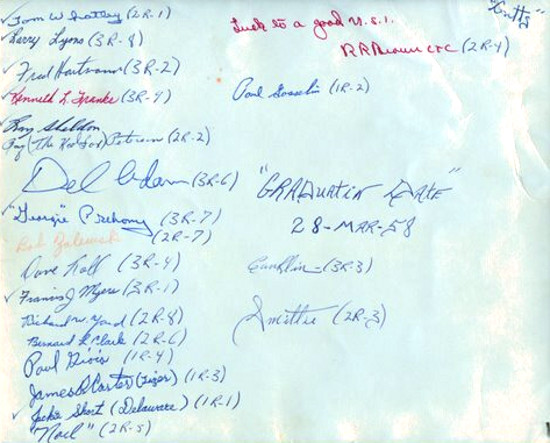 Tom W Whatley (2R-1)
Larry Lyons (3R-8)
Fred Hartman (3R-2)
Kenneth L. Franks (3R-4)
Roy Sheldon
Ray (The Red Fox) Peterson (2R-2)
Del Adam (3R-6)
"Georgie" Prehomy (3R-7)
Bob Zalewski (2R-7)
Dave Kall (3R-4)
Francis J Myers (3R-1)
Richard W. Yound (2R-8)
Bernard L Clark (2R-6)
Paul (1R-4)
James R Carter (Tiger) (1R-3)
Jackie Short (Delaware) (1R-1)
"Noel" (2R-5)
"Cutty"
Luck to a good U.S.I.
R R Brown CTC (2R-4)
Paul Gosselin (1R-2)
"GRADUATIN DATE"
28-MAR-58
Conklin (3R-3)
Smittie (2R-3)